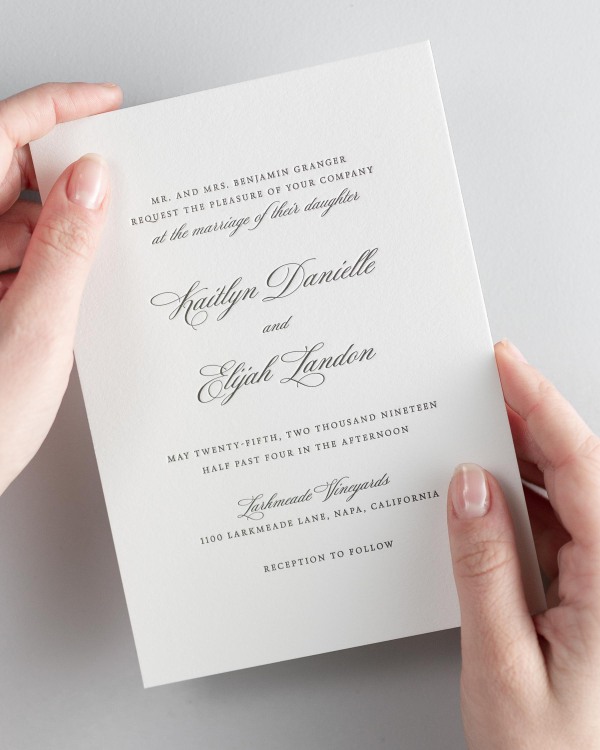 MR. AND MRS. BENJAMIN GRANGER
REQUEST THE PLEASURE OF YOUR COMPANY
at the marriage of their daughter
Kaitlyn Danielle
and
Elijah Landon
MAY TWENTY-FIFTH, TWO THOUSAND NINETEEN
HALF PAST FOUR IN THE AFTERNOON
Larkmeade Vineyards
1100 LARKMEADE LANE, NAPA, CALIFORNIA
RECEPTION TO FOLLOW